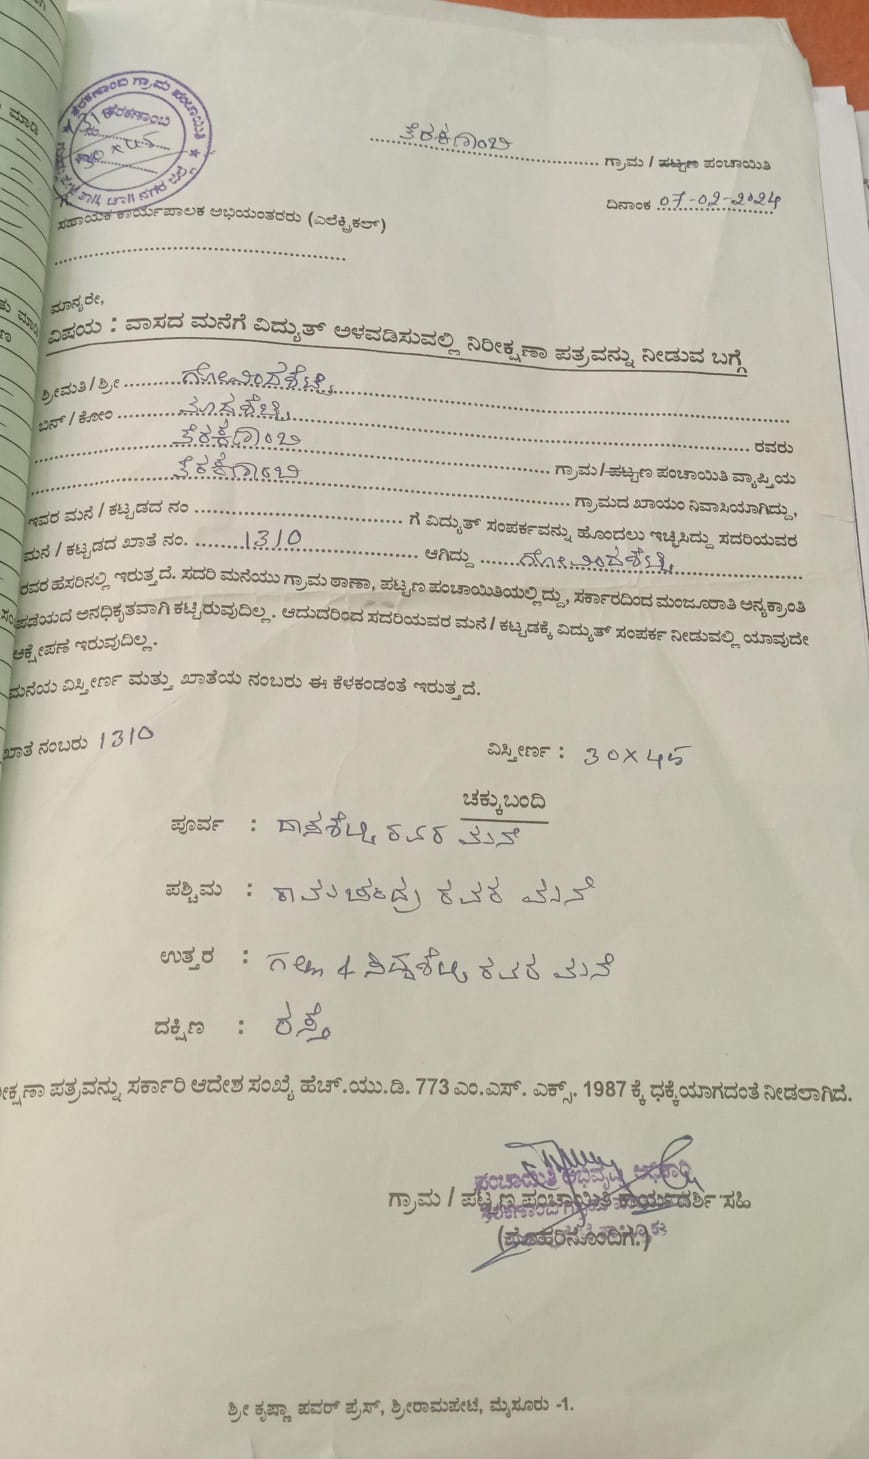 ತೆರಕಣಾಂಬಿ ಗ್ರಾಮ ಪಂಚಾಯಿತಿ
ತೆರಕಣಾಂಬಿ
ಗ್ರಾಮ / ಪಟ್ಟಣ ಪಂಚಾಯಿತಿ
ದಿನಾಂಕ 07-02-2024
ಸಹಾಯಕ ಕಾರ್ಯಪಾಲಕ ಅಭಿಯಂತರರು (ಎಲೆಕ್ಟ್ರಿಕಲ್)
ಮಾನ್ಯರೇ,
ವಿಷಯ : ವಾಸದ ಮನೆಗೆ ವಿದ್ಯುತ್ ಅಳವಡಿಸುವಲ್ಲಿ ನಿರೀಕ್ಷಣಾ ಪತ್ರವನ್ನು ನೀಡುವ ಬಗ್ಗೆ
ಶ್ರೀಮತಿ / ಶ್ರೀ ಗೋವಿಂದಶೆಟ್ಟಿ
ಬಿನ್ / ಕೋಂ ಮಾದಶೆಟ್ಟಿ ರವರು
ತೆರಕಣಾಂಬಿ ಗ್ರಾಮ / ಪಟ್ಟಣ ಪಂಚಾಯಿತಿ ವ್ಯಾಪ್ತಿಯ
ತೆರಕಣಾಂಬಿ ಗ್ರಾಮದ ಖಾಯಂ ನಿವಾಸಿಯಾಗಿದ್ದು,
ಇವರ ಮನೆ / ಕಟ್ಟಡದ ನಂ ಗೆ ವಿದ್ಯುತ್ ಸಂಪರ್ಕವನ್ನು ಹೊಂದಲು ಇಚ್ಛಿಸಿದ್ದು ಸದರಿಯವರ
ಮನೆ / ಕಟ್ಟಡದ ಖಾತೆ ನಂ. 1310 ಆಗಿದ್ದು ಗೋವಿಂದಶೆಟ್ಟಿ
ರವರ ಹೆಸರಿನಲ್ಲಿ ಇರುತ್ತದೆ. ಸದರಿ ಮನೆಯು ಗ್ರಾಮ ಠಾಣಾ, ಪಟ್ಟಣ ಪಂಚಾಯಿತಿಯಲ್ಲಿದ್ದು, ಸರ್ಕಾರದಿಂದ ಮಂಜೂರಾತಿ ಅನ್ಯಕ್ರಾಂತಿ
ಪಡೆಯದೆ ಅನಧಿಕೃತವಾಗಿ ಕಟ್ಟಿರುವುದಿಲ್ಲ. ಆದುದರಿಂದ ಸದರಿಯವರ ಮನೆ / ಕಟ್ಟಡಕ್ಕೆ ವಿದ್ಯುತ್ ಸಂಪರ್ಕ ನೀಡುವಲ್ಲಿ ಯಾವುದೇ
ಆಕ್ಷೇಪಣೆ ಇರುವುದಿಲ್ಲ.
ಮನೆಯ ವಿಸ್ತೀರ್ಣ ಮತ್ತು ಖಾತೆಯ ನಂಬರು ಈ ಕೆಳಕಂಡಂತೆ ಇರುತ್ತದೆ.
ಖಾತೆ ನಂಬರು 1310
ವಿಸ್ತೀರ್ಣ : 30x45
ಚಕ್ಕುಬಂದಿ
ಪೂರ್ವ : ದಾಸಶೆಟ್ಟಿ ರವರ ಮನೆ
ಪಶ್ಚಿಮ : ರಾಮಚಂದ್ರು ರವರ ಮನೆ
ಉತ್ತರ : ಗಲ್ಲಿ & ಸಿದ್ದಶೆಟ್ಟಿ ರವರ ಮನೆ
ದಕ್ಷಿಣ : ರಸ್ತೆ
ಪತ್ರವನ್ನು ಸರ್ಕಾರಿ ಆದೇಶ ಸಂಖ್ಯೆ ಹೆಚ್.ಯು.ಡಿ. 773 ಎಂ.ಎಸ್. ಎಕ್ಸ್. 1987 ಕ್ಕೆ ಧಕ್ಕೆಯಾಗದಂತೆ ನೀಡಲಾಗಿದೆ.
ಪಂಚಾಯಿತಿ ಅಭಿವೃದ್ಧಿ ಅಧಿಕಾರಿ
ಗ್ರಾಮ / ಪಟ್ಟಣ ಪಂಚಾಯಿತಿ ಕಾರ್ಯದರ್ಶಿ ಸಹಿ
(ಮೊಹರಿನೊಂದಿಗೆ.)
ಶ್ರೀ ಕೃಷ್ಣಾ ಪವರ್ ಪ್ರೆಸ್, ಶ್ರೀರಾಮಪೇಟೆ, ಮೈಸೂರು -1.